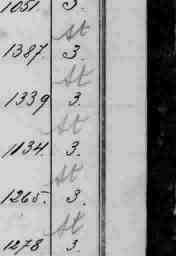 1051. 3.
st
1387. 3.
st
1339 3.
st
1134. 3.
st
1265. 3.
st
1278 3.